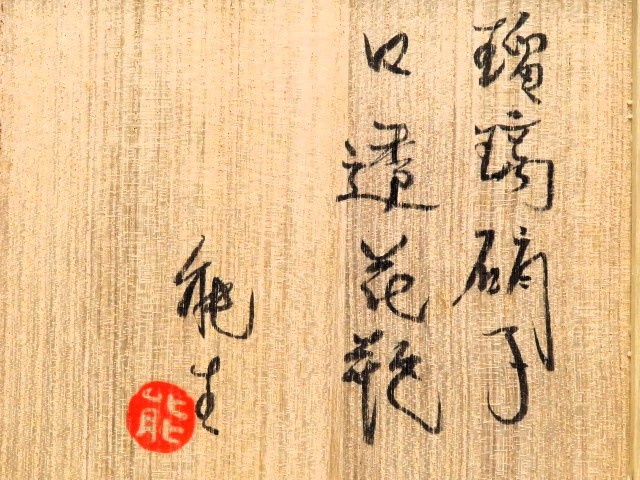 瑠璃硝子
口透花瓶
能生
能